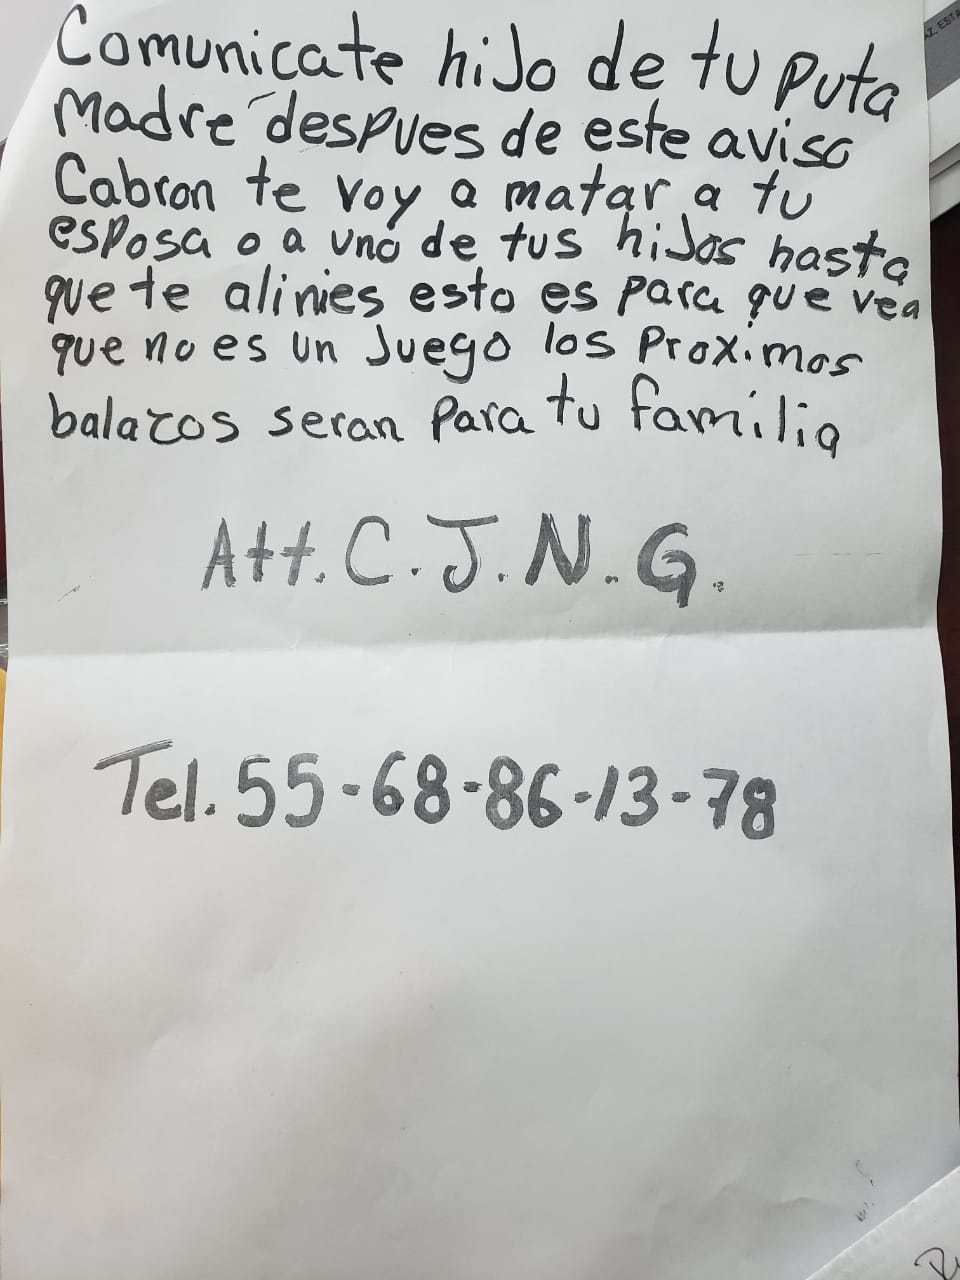 Comunicate hiJo de tu puta
Madre despues de este aviso
Cabron te voy a matar a tu
esposa o a uno de tus hiJos hasta
que te alinies esto es para que vea
que no es un Juego los Proximos
balazos seran Para tu familia
Att. C.J.N.G.
Tel. 55-68-86-13-78